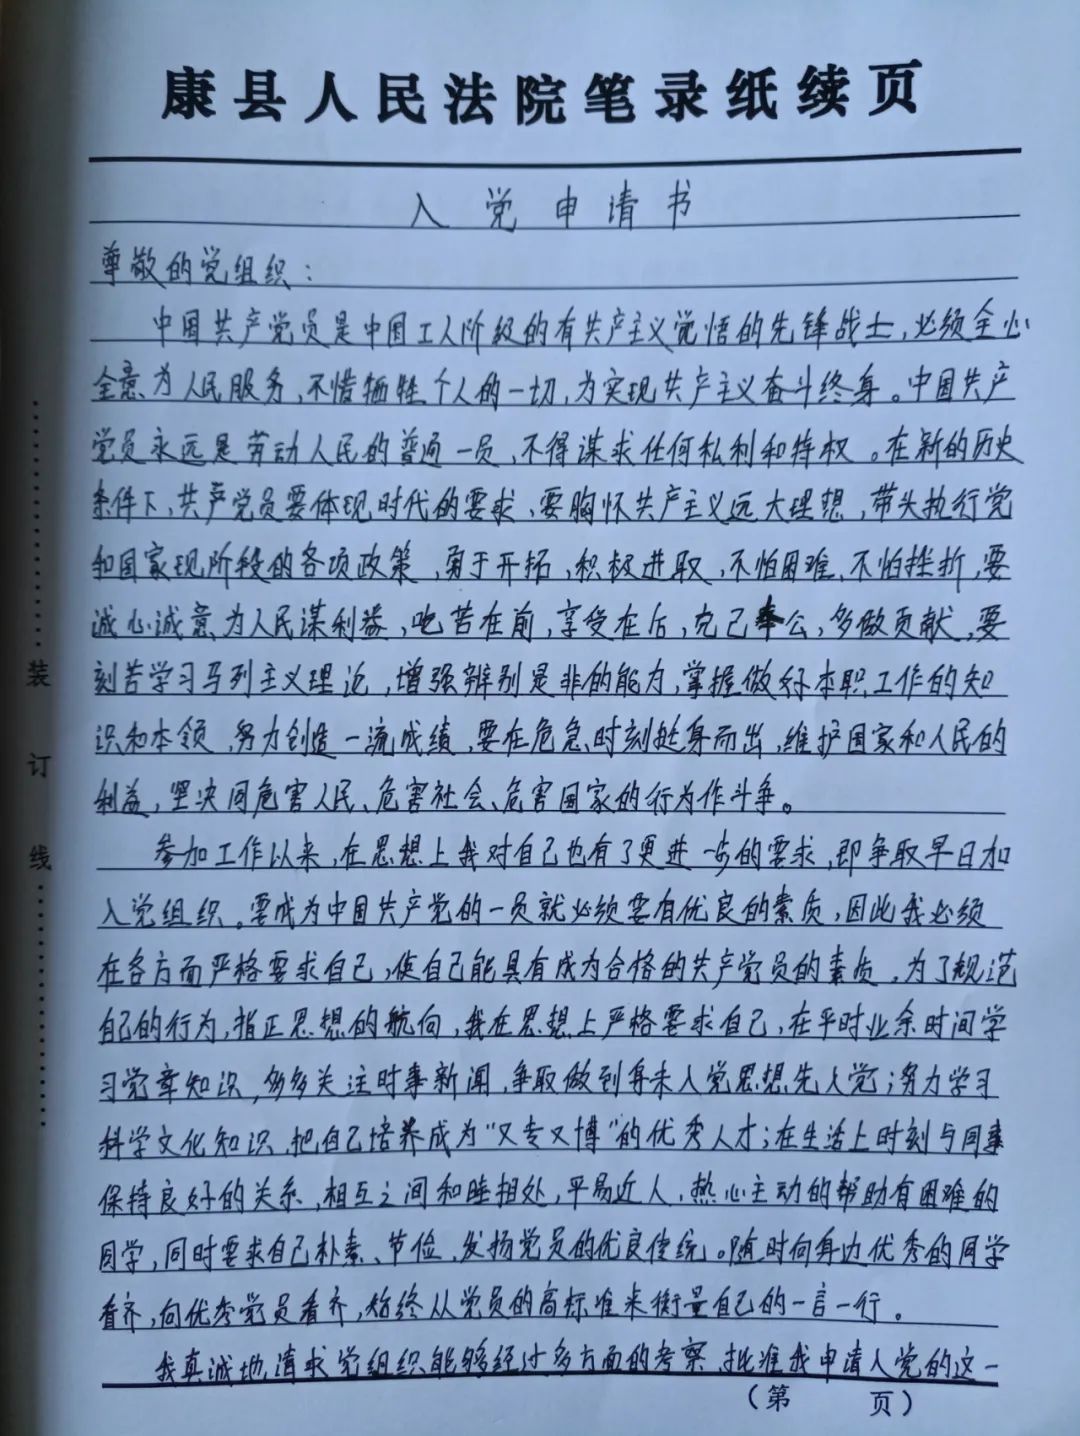 康县人民法院笔录纸续页
入党申请书
尊敬的党组织：
中国共产党员是中国工人阶级的有共产主义觉悟的先锋战士，必须全心
全意为人民服务，不惜牺牲个人的一切，为实现共产主义奋斗终身。中国共产
党员永远是劳动人民的普通一员，不得谋求任何私利和特权。在新的历史
条件下，共产党员要体现时代的要求，要胸怀共产主义远大理想，带头执行党
和国家现阶段的各项政策，勇于开拓，积极进取，不怕困难，不怕挫折，要
诚心诚意为人民谋利益，吃苦在前，享受在后，克己奉公，多做贡献，要
刻苦学习马列主义理论，增强辨别是非的能力，掌握做好本职工作的知
识和本领，努力创造一流成绩，要在危急时刻挺身而出，维护国家和人民的
利益，坚决同危害人民、危害社会、危害国家的行为作斗争。
参加工作以来，在思想上我对自己也有了更进一步的要求，即争取早日加
入党组织。要成为中国共产党的一员就必须要有优良的素质，因此我必须
在各方面严格要求自己，使自己能具有成为合格的共产党员的素质，为了规范
自己的行为，指正思想的航向，我在思想上严格要求自己，在平时业余时间学
习党章知识，多多关注时事新闻，争取做到身未入党思想先入党；努力学习
科学文化知识，把自己培养成为“又专又博”的优秀人才；在生活上时刻与同事
保持良好的关系，相互之间和睦相处，平易近人，热心主动的帮助有困难的
同学，同时要求自己朴素、节俭，发扬党员的优良传统。随时向身边优秀的同学
看齐，向优秀党员看齐，始终从党员的高标准来衡量自己的一言一行。
我真诚地请求党组织能够经过多方面的考察，批准我申请入党的这一
（第 页）
装
订
线